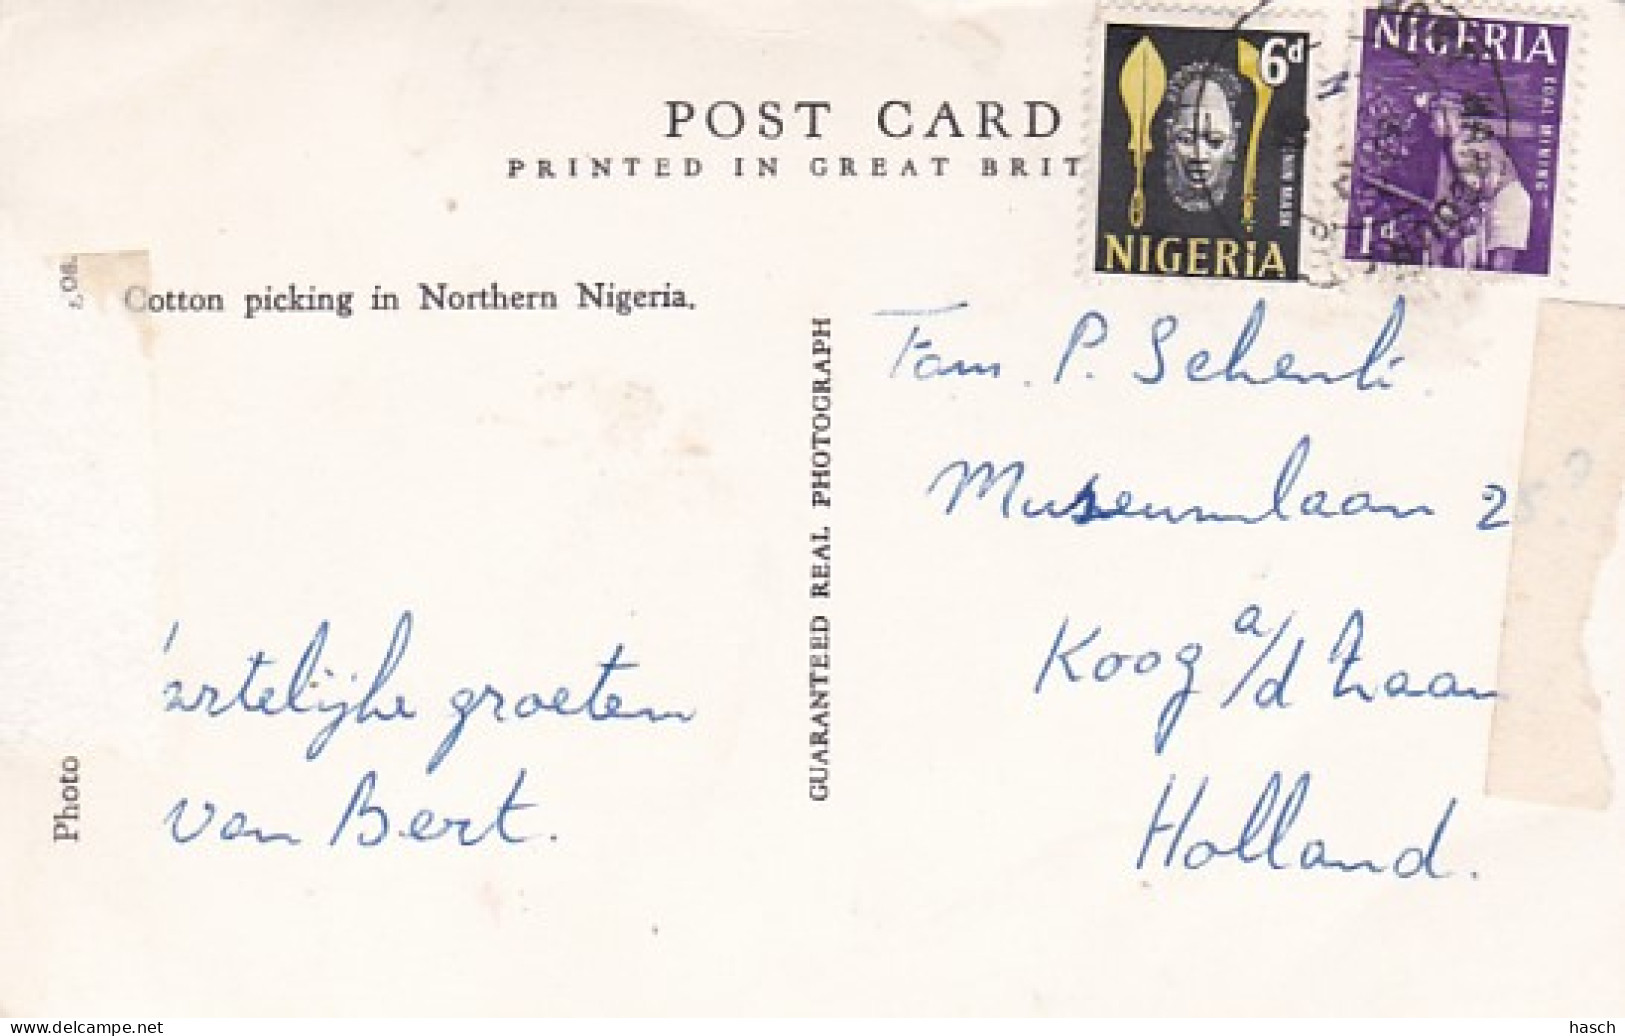 POST CARD
PRINTED IN GREAT BRIT
6d
BENIN MASK
NIGERIA
NIGERIA
COAL MINING
1d
Cotton picking in Northern Nigeria.
Photo
GUARANTEED REAL PHOTOGRAPH
artelijke groeten
van Bert.
Fam. P. Schenk.
Museumlaan 25
Koog a/d Zaan
Holland.
hasch